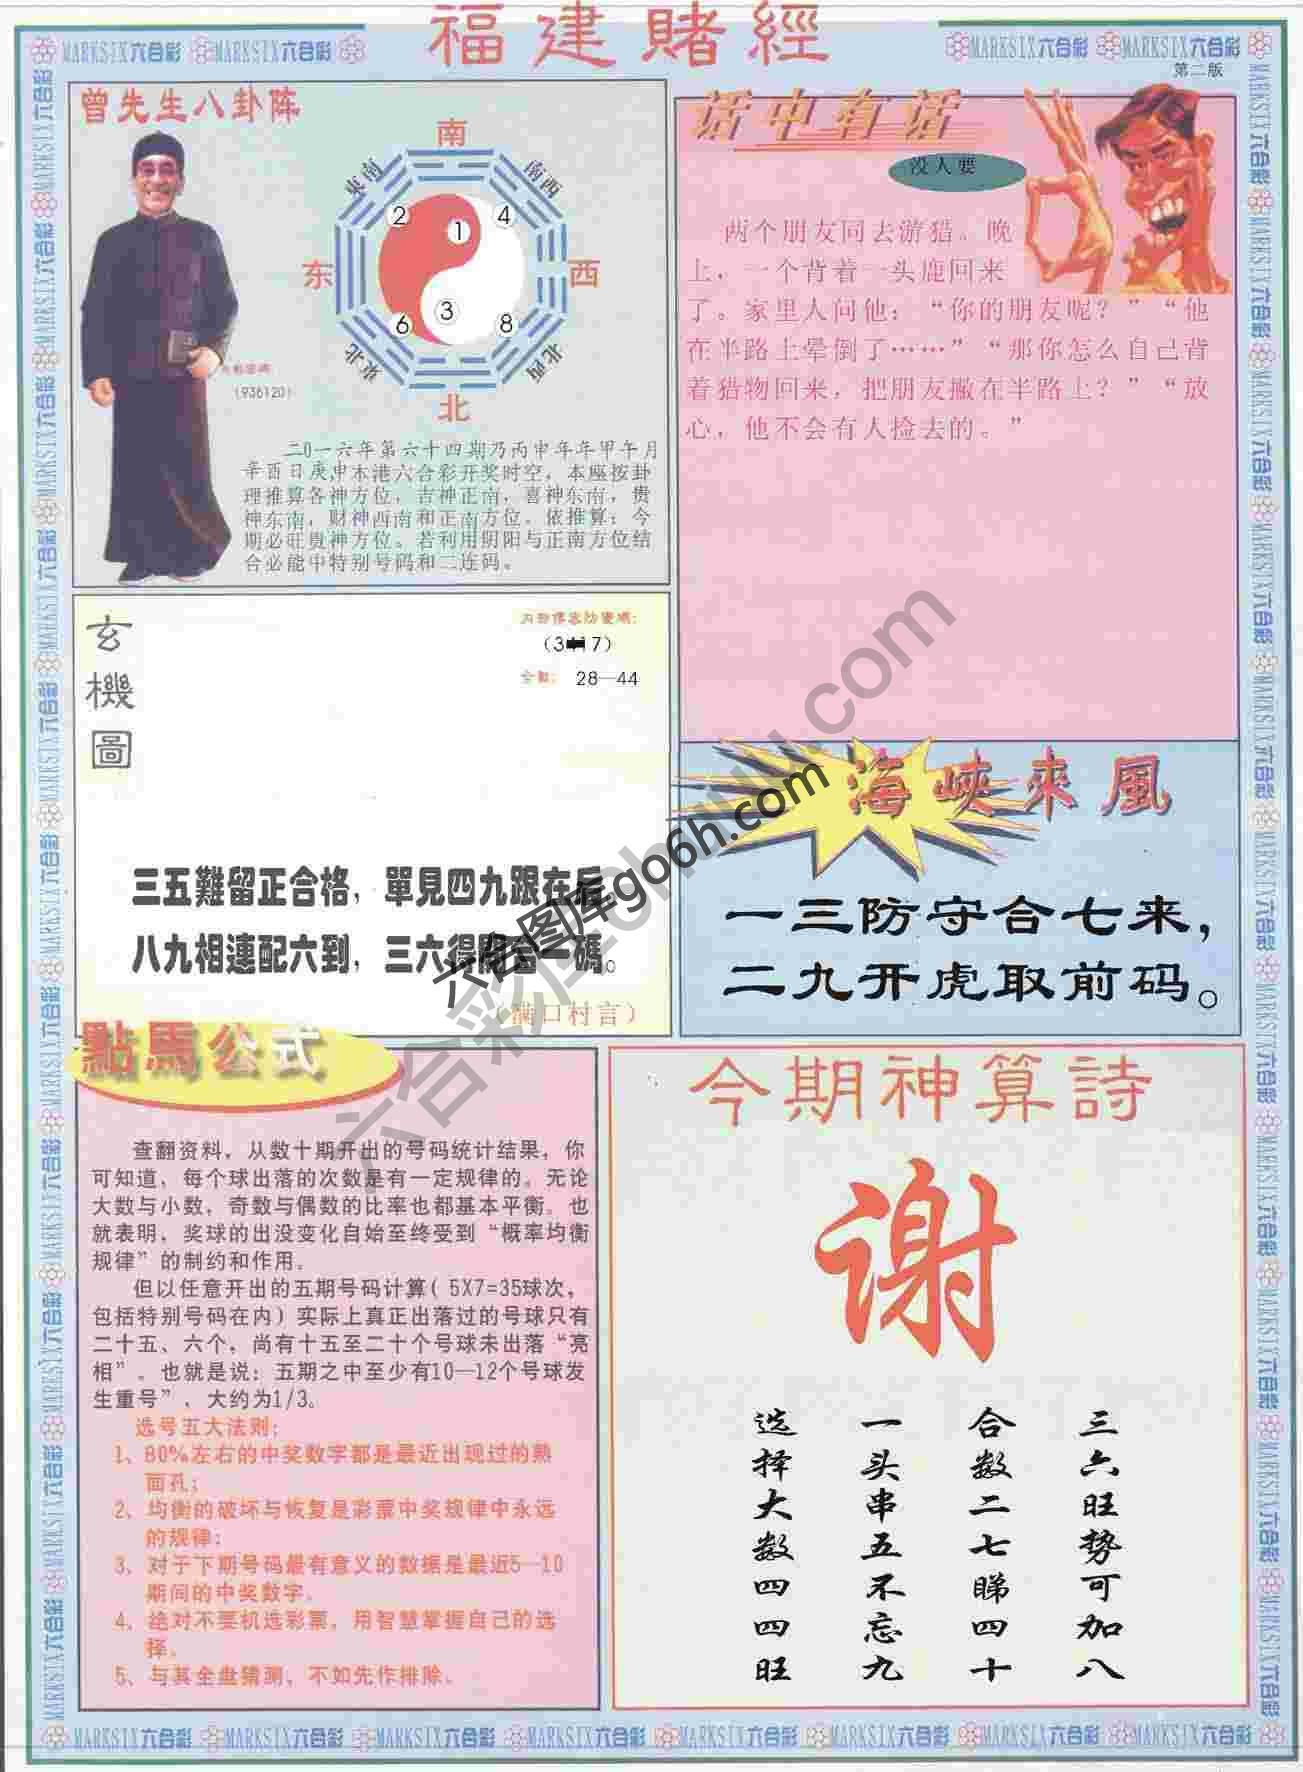 福建賭經
MARKSIX六合彩 MARKSIX六合彩
MARKSIX六合彩 MARKSIX六合彩
第二版
曾先生八卦阵
南
東南
南西
2
1
4
东
西
6
3
8
東北
北西
北
(936120)
二0一六年第六十四期乃丙申年年甲午月
辛酉日庚申本港六合彩开奖时空，本座按卦
理推算各神方位，吉神正南，喜神东南，贵
神东南，财神西南和正南方位。依推算：今
期必旺贵神方位。若利用阴阳与正南方位结
合必能中特别号码和二连码。
话中有话
没人要
两个朋友同去游猎。晚
上，一个背着一头鹿回来
了。家里人问他：“你的朋友呢？”“他
在半路上晕倒了……”“那你怎么自己背
着猎物回来，把朋友撇在半路上？”“放
心，他不会有人捡去的。”
玄機圖
28—44
三五難留正合格，單見四九跟在后
八九相連配六到，三六得開合一碼。
（满口村言）
海峽來風
一三防守合七来，
二九开虎取前码。
六合图库go6h.com
點馬公式
查翻资料，从数十期开出的号码统计结果，你
可知道，每个球出落的次数是有一定规律的。无论
大数与小数，奇数与偶数的比率也都基本平衡。也
就表明，奖球的出没变化自始至终受到“概率均衡
规律”的制约和作用。
但以任意开出的五期号码计算( 5X7=35球次，
包括特别号码在内）实际上真正出落过的号球只有
二十五、六个，尚有十五至二十个号球未出落“亮
相”。也就是说：五期之中至少有10—12个号球发
生重号”，大约为1/3。
选号五大法则：
1、80%左右的中奖数字都是最近出现过的熟
面孔；
2、均衡的破坏与恢复是彩票中奖规律中永远
的规律；
3、对于下期号码最有意义的数据是最近5—10
期间的中奖数字。
4、绝对不要机选彩票，用智慧掌握自己的选
择。
5、与其全盘猜测，不如先作排除。
今期神算詩
谢
三六旺势可加八
合数二七睇四十
一头串五不忘九
选择大数四四旺
MARKSIX六合彩 MARKSIX六合彩 MARKSIX六合彩 MARKSIX六合彩 MARKSIX六合彩 MARKSIX六合彩 MARKSIX六合彩 MARKSIX六合彩